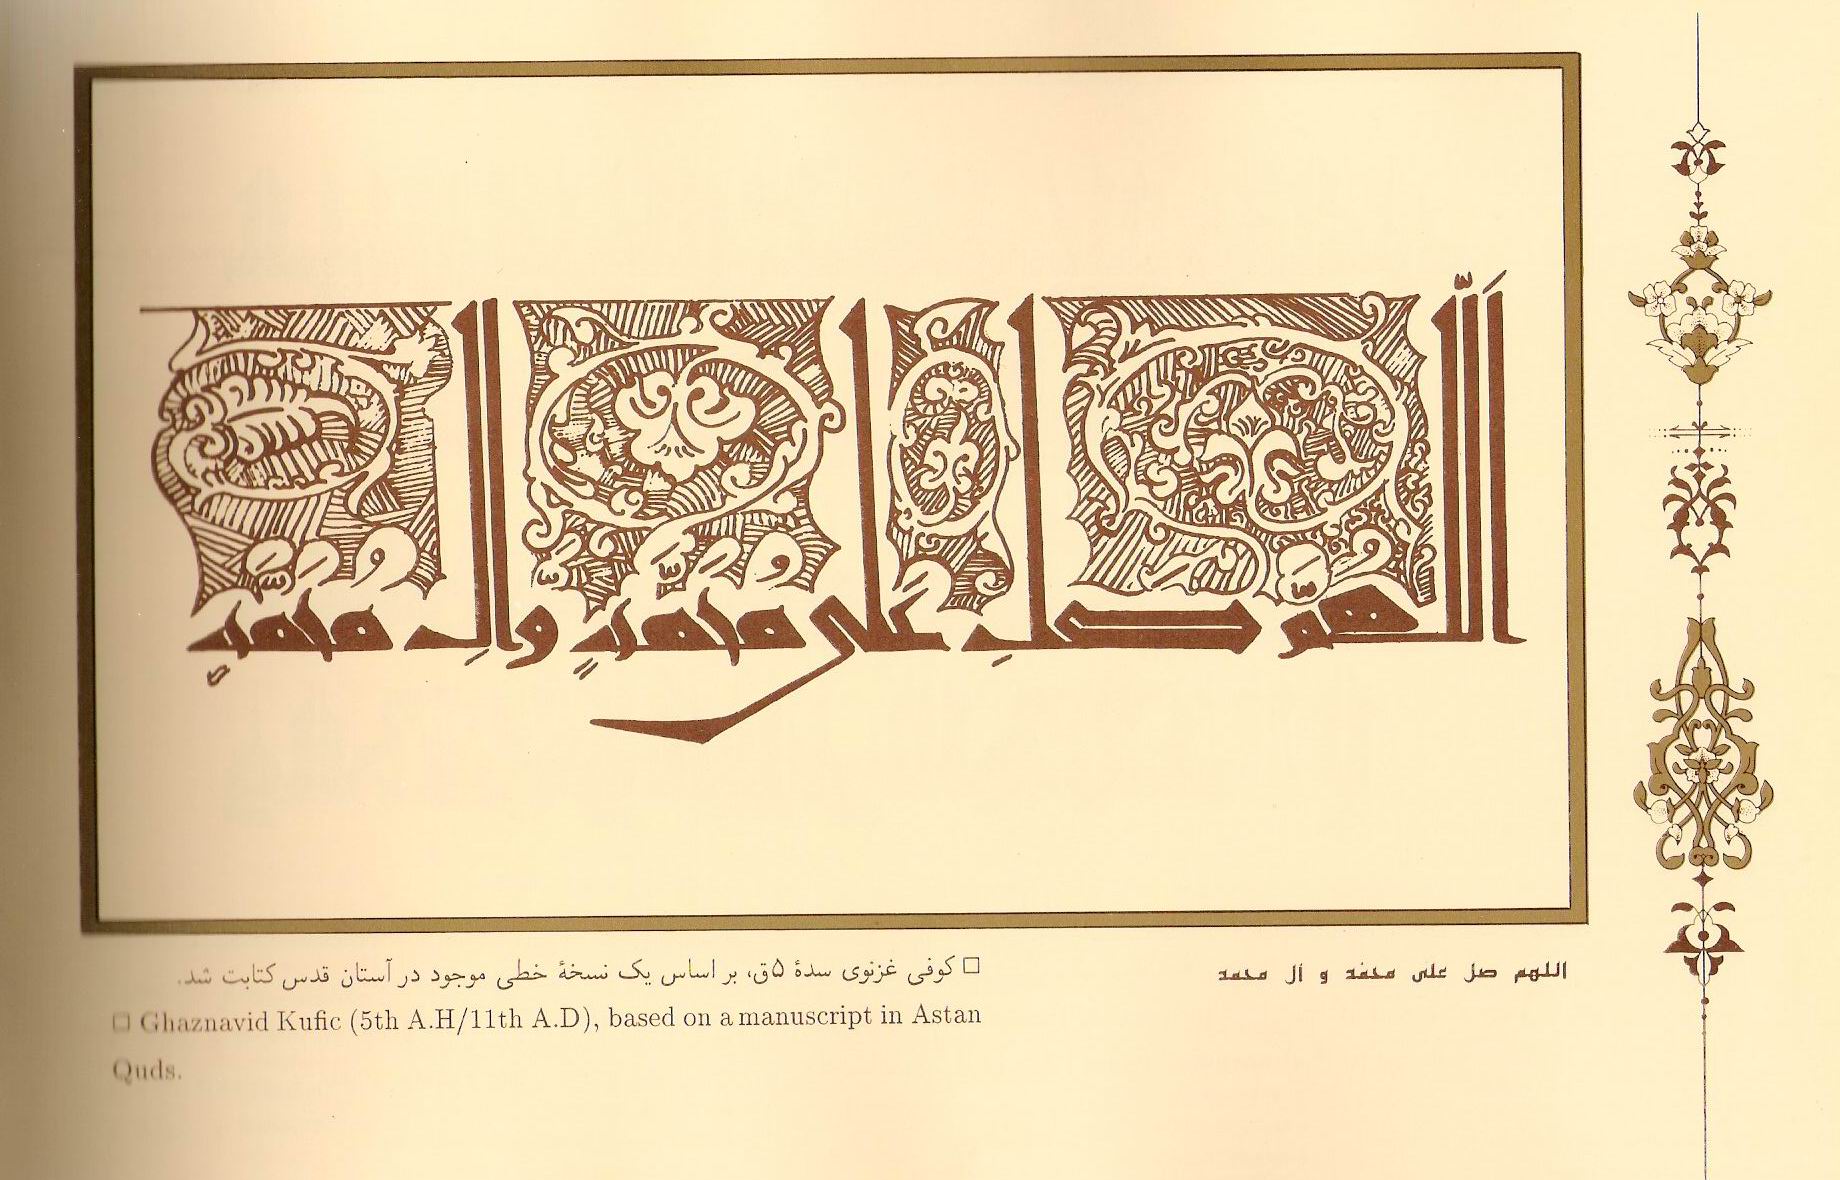 اللهم صل على محمد وال محمد
اللهم صل على محمد و ال محمد
□ کوفی غزنوی سدهٔ ۵ق، بر اساس یک نسخهٔ خطی موجود در آستان قدس کتابت شد.
□ Ghaznavid Kufic (5th A.H/11th A.D), based on a manuscript in Astan
Quds.